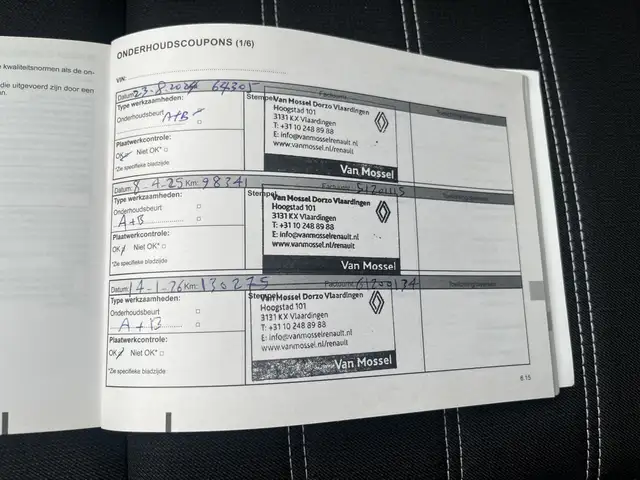 e kwaliteitsnormen als de on-
die uitgevoerd zijn door een
ONDERHOUDSCOUPONS (1/6)
VIN:
Datum: 23-8-2024 64305 Factuurnr.
Type werkzaamheden: Stempel
Onderhoudsbeurt A+B
Plaatwerkcontrole:
OK Niet OK*
*Zie specifieke bladzijde
Van Mossel Dorzo Vlaardingen
Hoogstad 101
3131 KX Vlaardingen
T: +31 10 248 89 88
E: info@vanmosselrenault.nl
www.vanmossel.nl/renault
Van Mossel
Datum: 8-4-25 Km: 98341 Factuurnr.
Type werkzaamheden: Stempel
Onderhoudsbeurt
A+B
Plaatwerkcontrole:
OK Niet OK*
*Zie specifieke bladzijde
Van Mossel Dorzo Vlaardingen
Hoogstad 101
3131 KX Vlaardingen
T: +31 10 248 89 88
E: info@vanmosselrenault.nl
www.vanmossel.nl/renault
Van Mossel
Datum: 14-1-26 Km: 130275 Factuurnr. 61200134
Type werkzaamheden: Stempel
Onderhoudsbeurt
A+B
Plaatwerkcontrole:
OK Niet OK*
*Zie specifieke bladzijde
Van Mossel Dorzo Vlaardingen
Hoogstad 101
3131 KX Vlaardingen
T: +31 10 248 89 88
E: info@vanmosselrenault.nl
www.vanmossel.nl/renault
Van Mossel
6.15